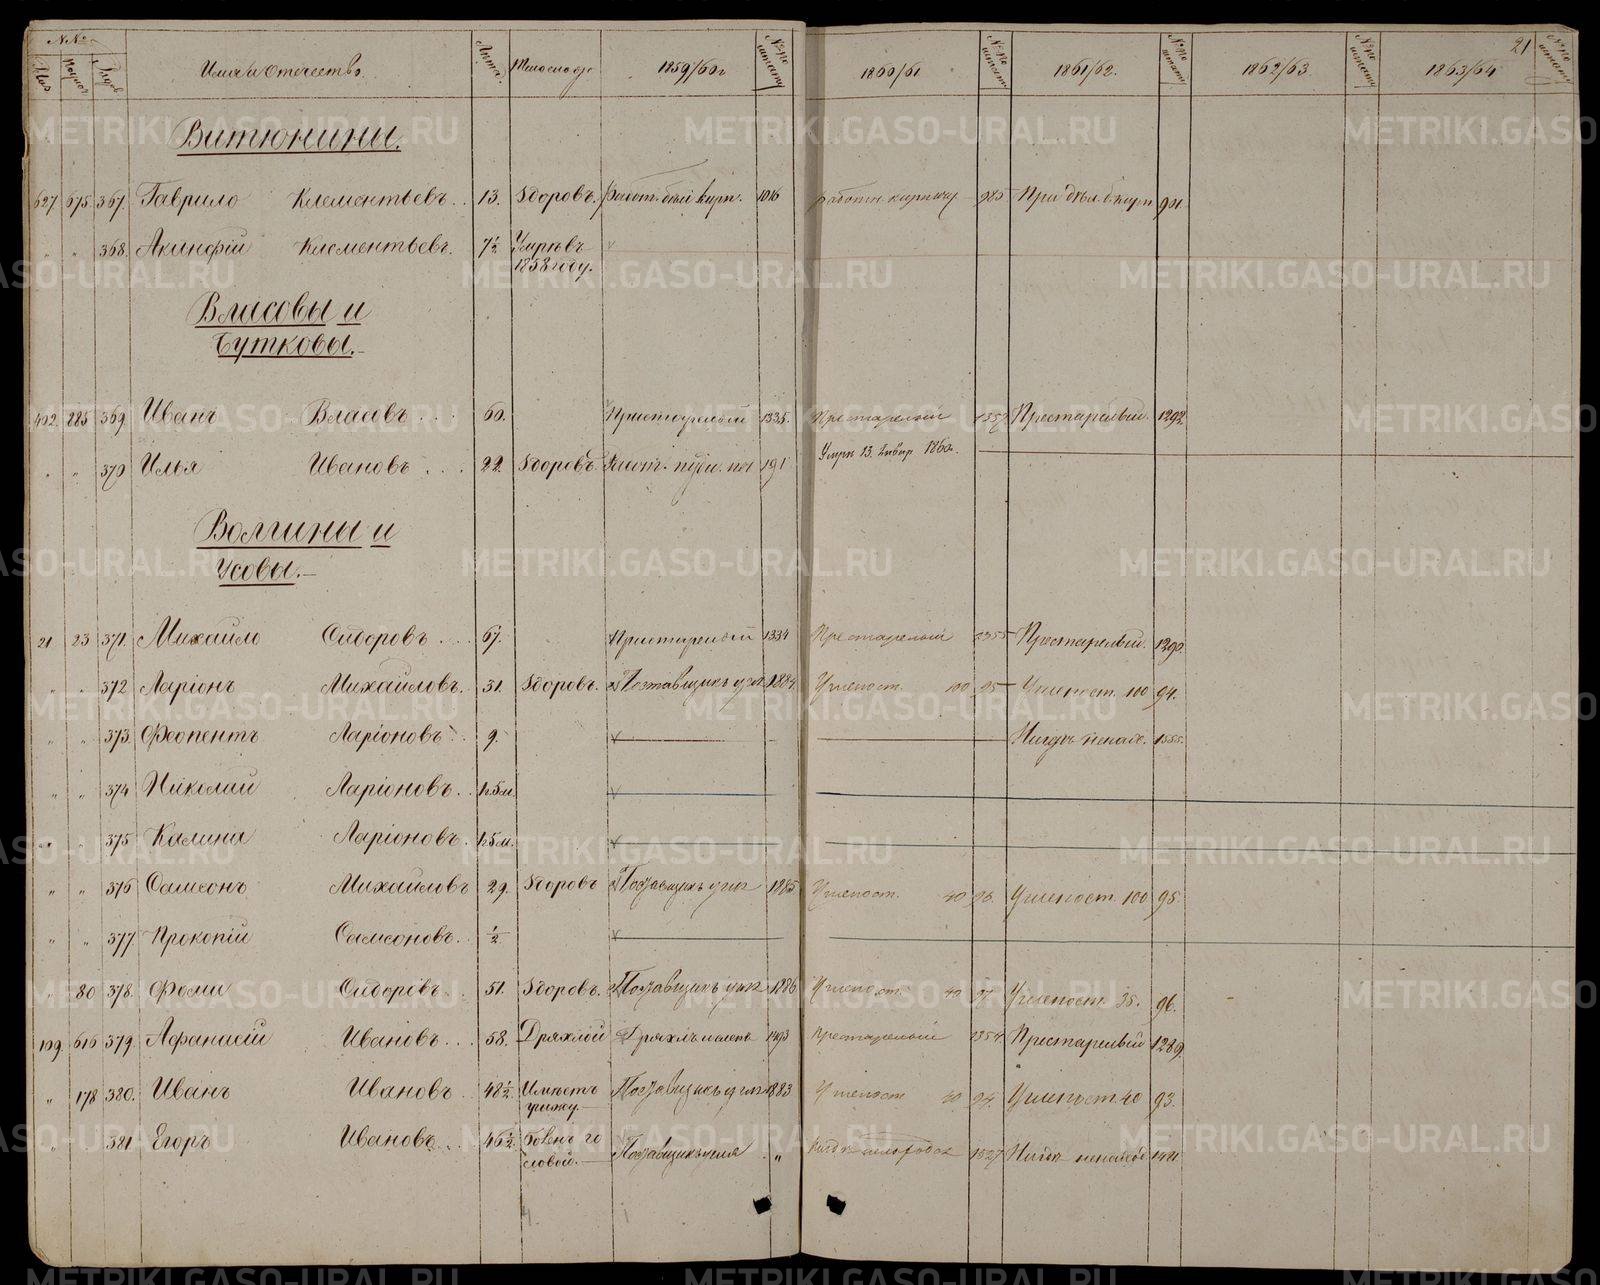 NNо
Имя и Отчество. Лѣта. 1859/60 г 1860/61 1861/62. 1862/63. 1863/64 21
Витюнины.
627 675 367. Гаврило Клементьевъ.. 13. Здоровъ. Работ. 1016 работн кирпичу 985 При дѣл. 901
" " 368. Акинфій Клементьевъ. 7½ Умре въ
1858 году.
Власовы и
Бутковы.
402. 285 369 Иванъ Власовъ.... 60. Престарелой 1335. Престарелой 1357 Престарелый. 1292
" " 370 Илья Ивановъ.... 22. Здоровъ. 191 Умре 13. Январ 1860.
Волгины и
Усовы.
21 23 371. Михайло Сидоровъ... 67. Престарелой 1334 Престарелой 1355 Престарелый. 1290.
" " 372 Ларіонъ Михайловъ. 31. Здоровъ. Поставщикъ угля 1884. Углепост. 100 95 Углепост. 100 94.
" " 373. Феопентъ Ларіоновъ.. 9. Нигдѣ ненах. 1555.
" " 374 Николай Ларіоновъ.. 1 г. 5 м.
" " 375 Калина Ларіоновъ. 1 г. 5 м.
" " 376 Самсонъ Михайловъ 29. Здоровъ Поставщикъ угля 1885 Углепост. 40 96. Углепост. 100 95
" " 377 Прокопій Самсоновъ.. ½
" 80 378. Фома Сидоровъ.. 51. Здоровъ. Поставщикъ угля 1886 Углепост. 40 97 Углепост. 35. 96.
199. 616 379. Афанасій Ивановъ... 58. Дряхлой Дряхлъ 1493 Престарелой 1354 Престарелый 1289.
" 178 380. Иванъ Ивановъ. 48½. Имѣетъ
грыжу. Поставщикъ угля 1883 Углепост 40 94. Углепост. 40 93.
" 381 Егоръ Ивановъ.. 46½. Боленъ го
ловой. Поставщикъ угля " 1527 Нигдѣ ненаход
METRIKI.GASO-URAL.RU